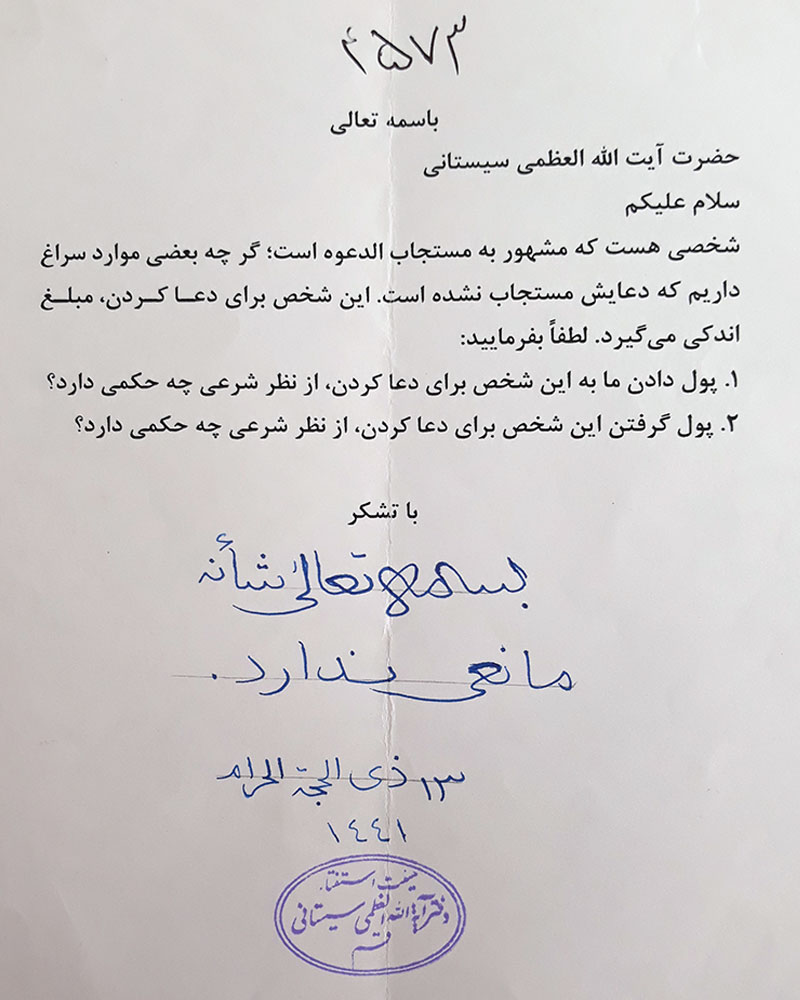 ۴۵۷۳
باسمه تعالی
حضرت آیت الله العظمی سیستانی
سلام علیکم
شخصی هست که مشهور به مستجاب الدعوه است؛ گر چه بعضی موارد سراغ
داریم که دعایش مستجاب نشده است. این شخص برای دعا کردن، مبلغ
اندکی می‌گیرد. لطفاً بفرمایید:
۱. پول دادن ما به این شخص برای دعا کردن، از نظر شرعی چه حکمی دارد؟
۲. پول گرفتن این شخص برای دعا کردن، از نظر شرعی چه حکمی دارد؟
با تشکر
بسمه تعالی شأنه
مانعی ندارد.
۱۳ ذی الحجة الحرام
١٤٤١
هیئت استفتاء
دفتر آیة الله العظمی سیستانی
قم